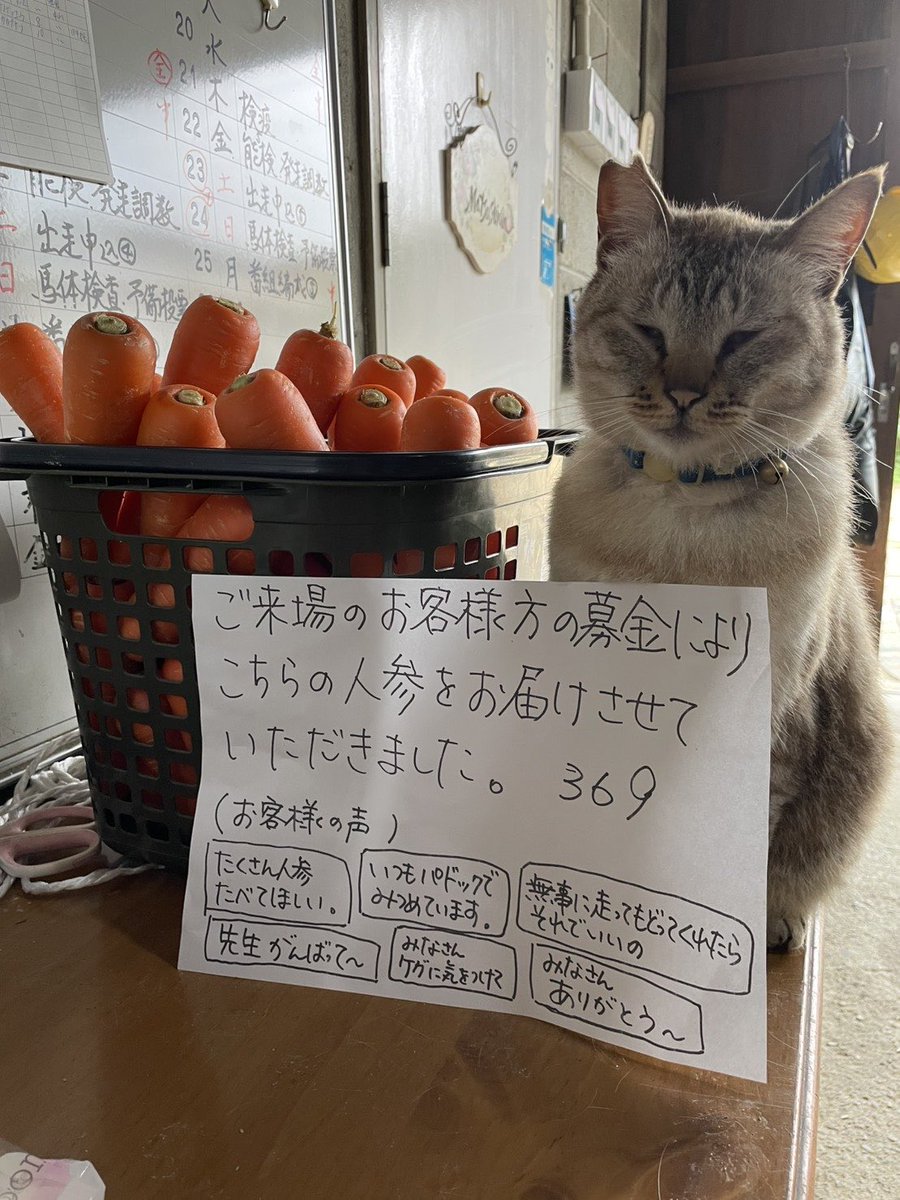 20
水
21
木
検疫
22
金
能検・発走調数
23
土
出走申込
24
日
馬体検査・予備投票
25
月
能検・発走調数
出走申込
日
馬体検査・予備投票
ご来場のお客様方の募金により
こちらの人参をお届けさせて
いただきました。 369
(お客様の声)
たくさん人参
たべてほしい。
いつもパドックで
みつめています。
無事に走ってもどってくれたら
それでいいの
先生がんばって〜
みなさん
ケガに気をつけて
みなさん
ありがとう〜